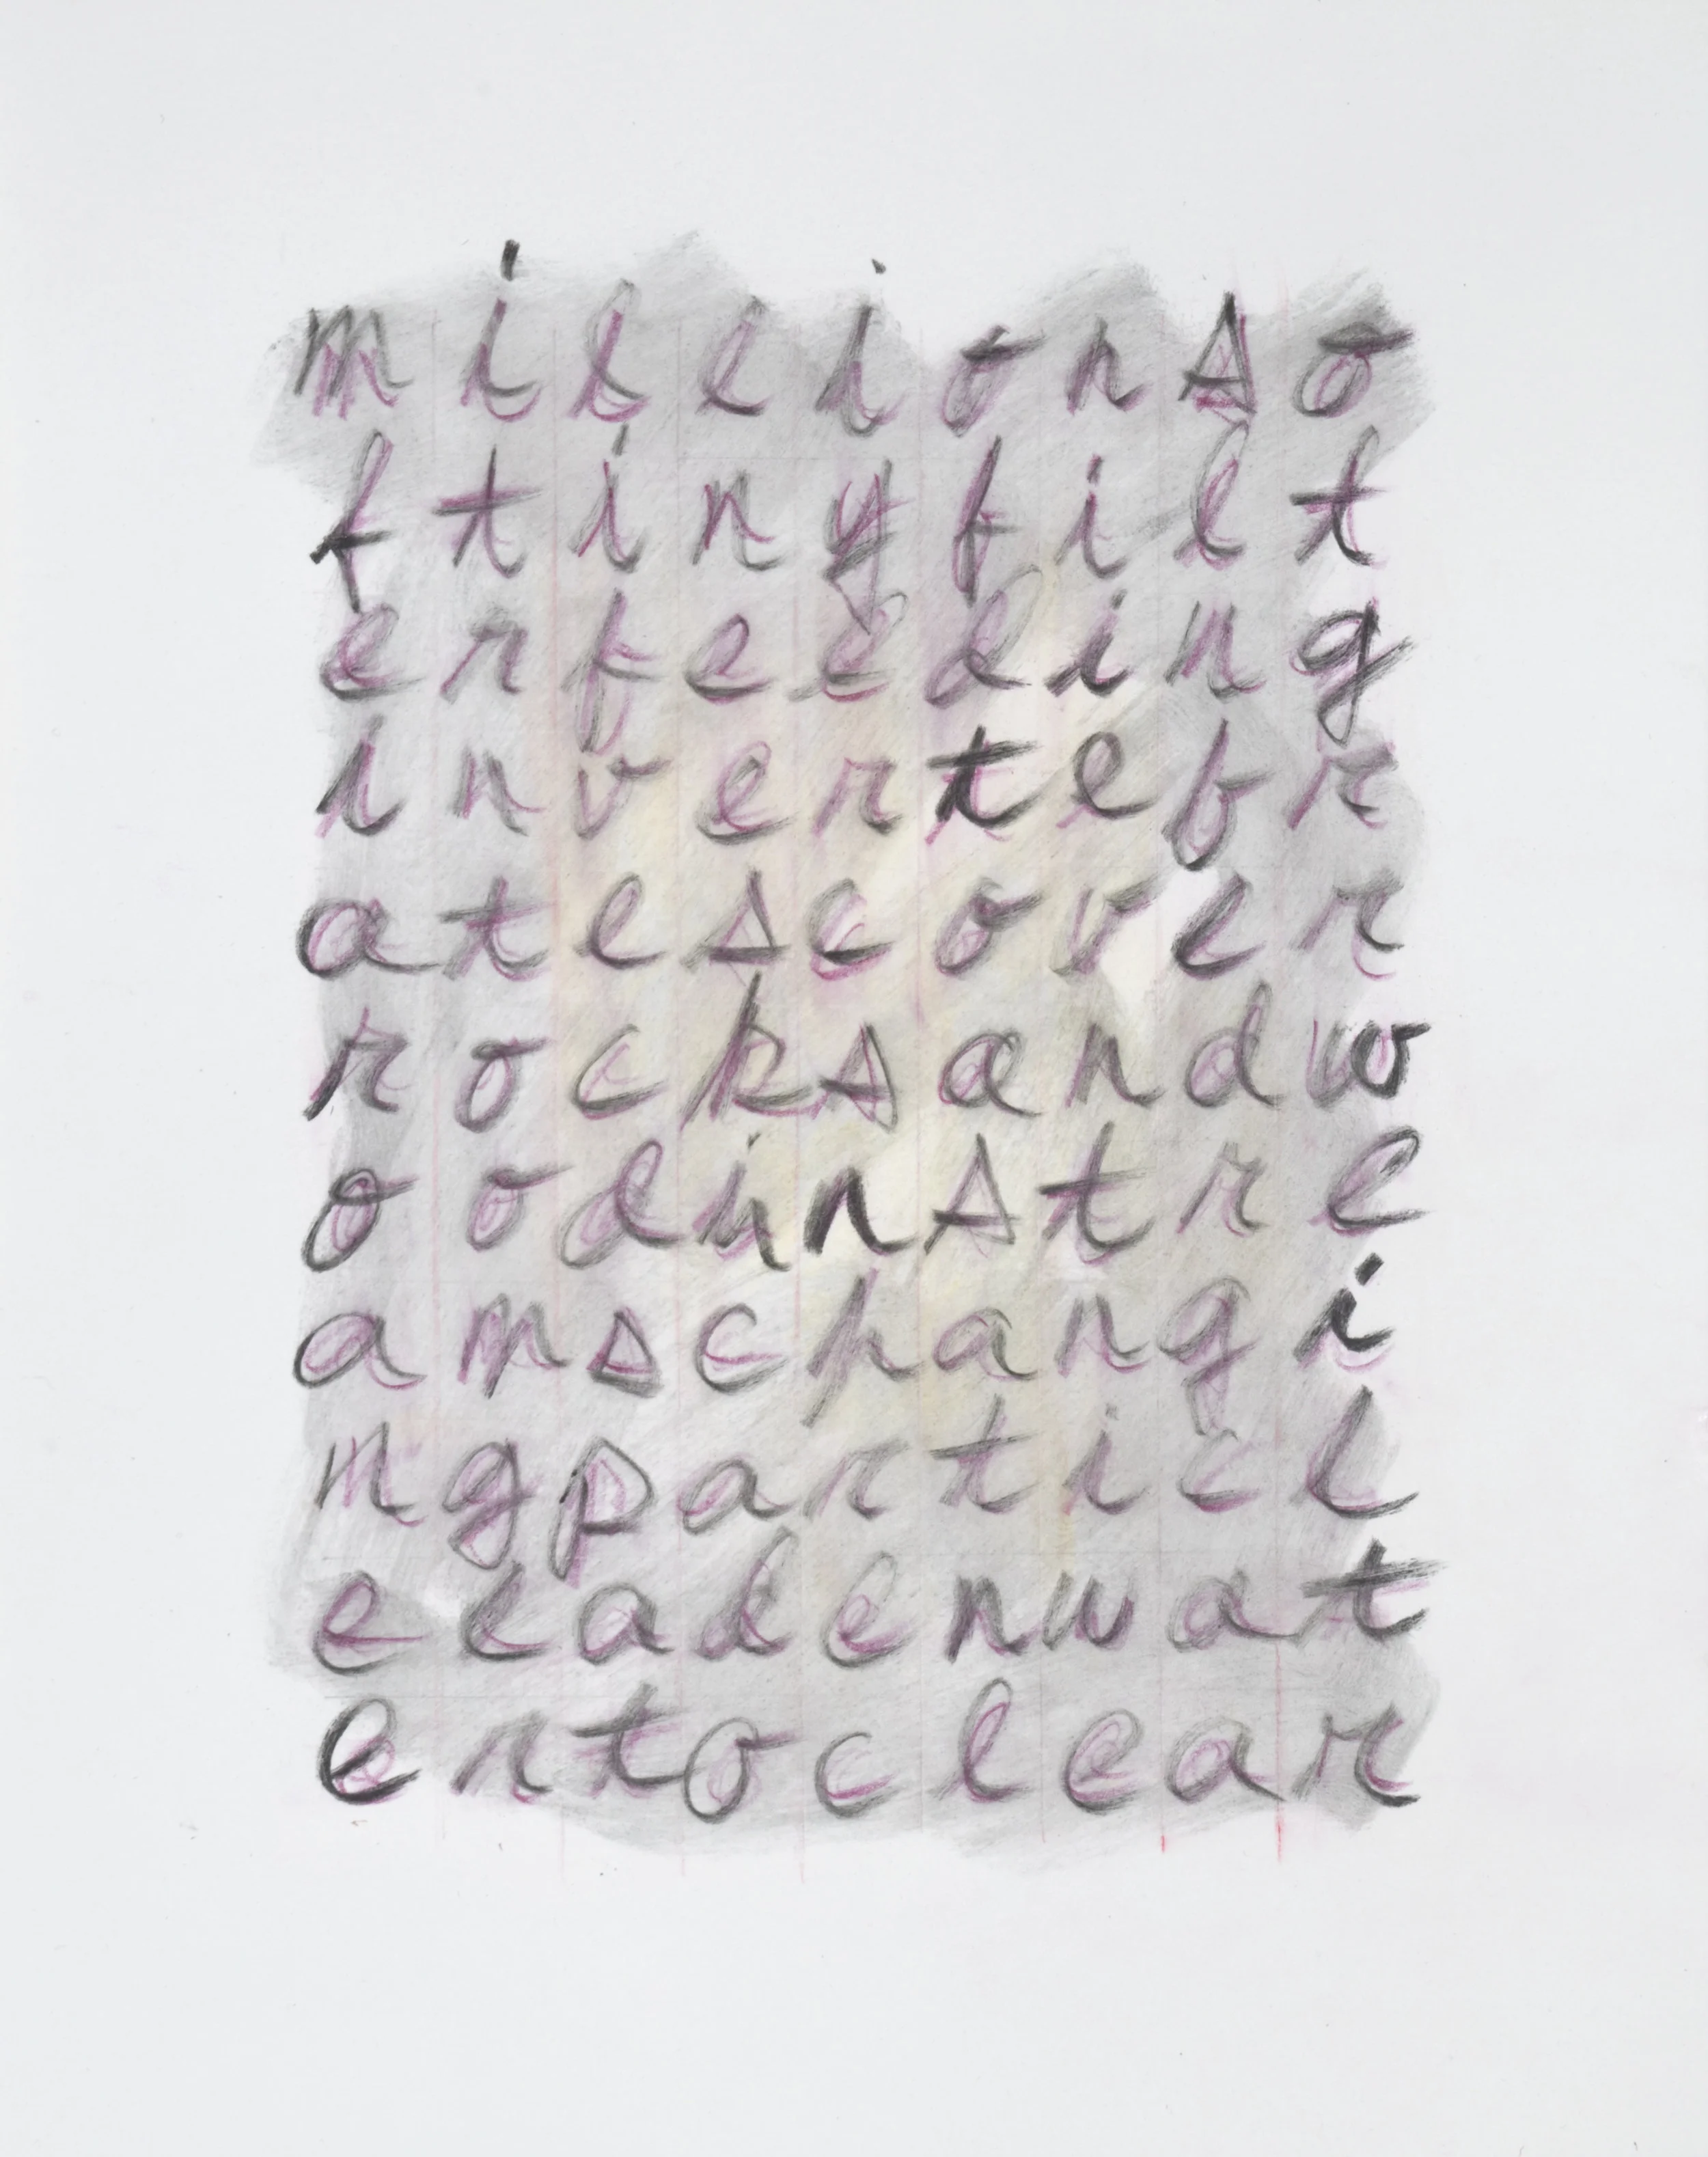 millionso
ftinyfilt
erfeeding
invertebr
atescover
rocksandw
oodinstre
amschangi
ngparticl
eladenwat
ertoclear